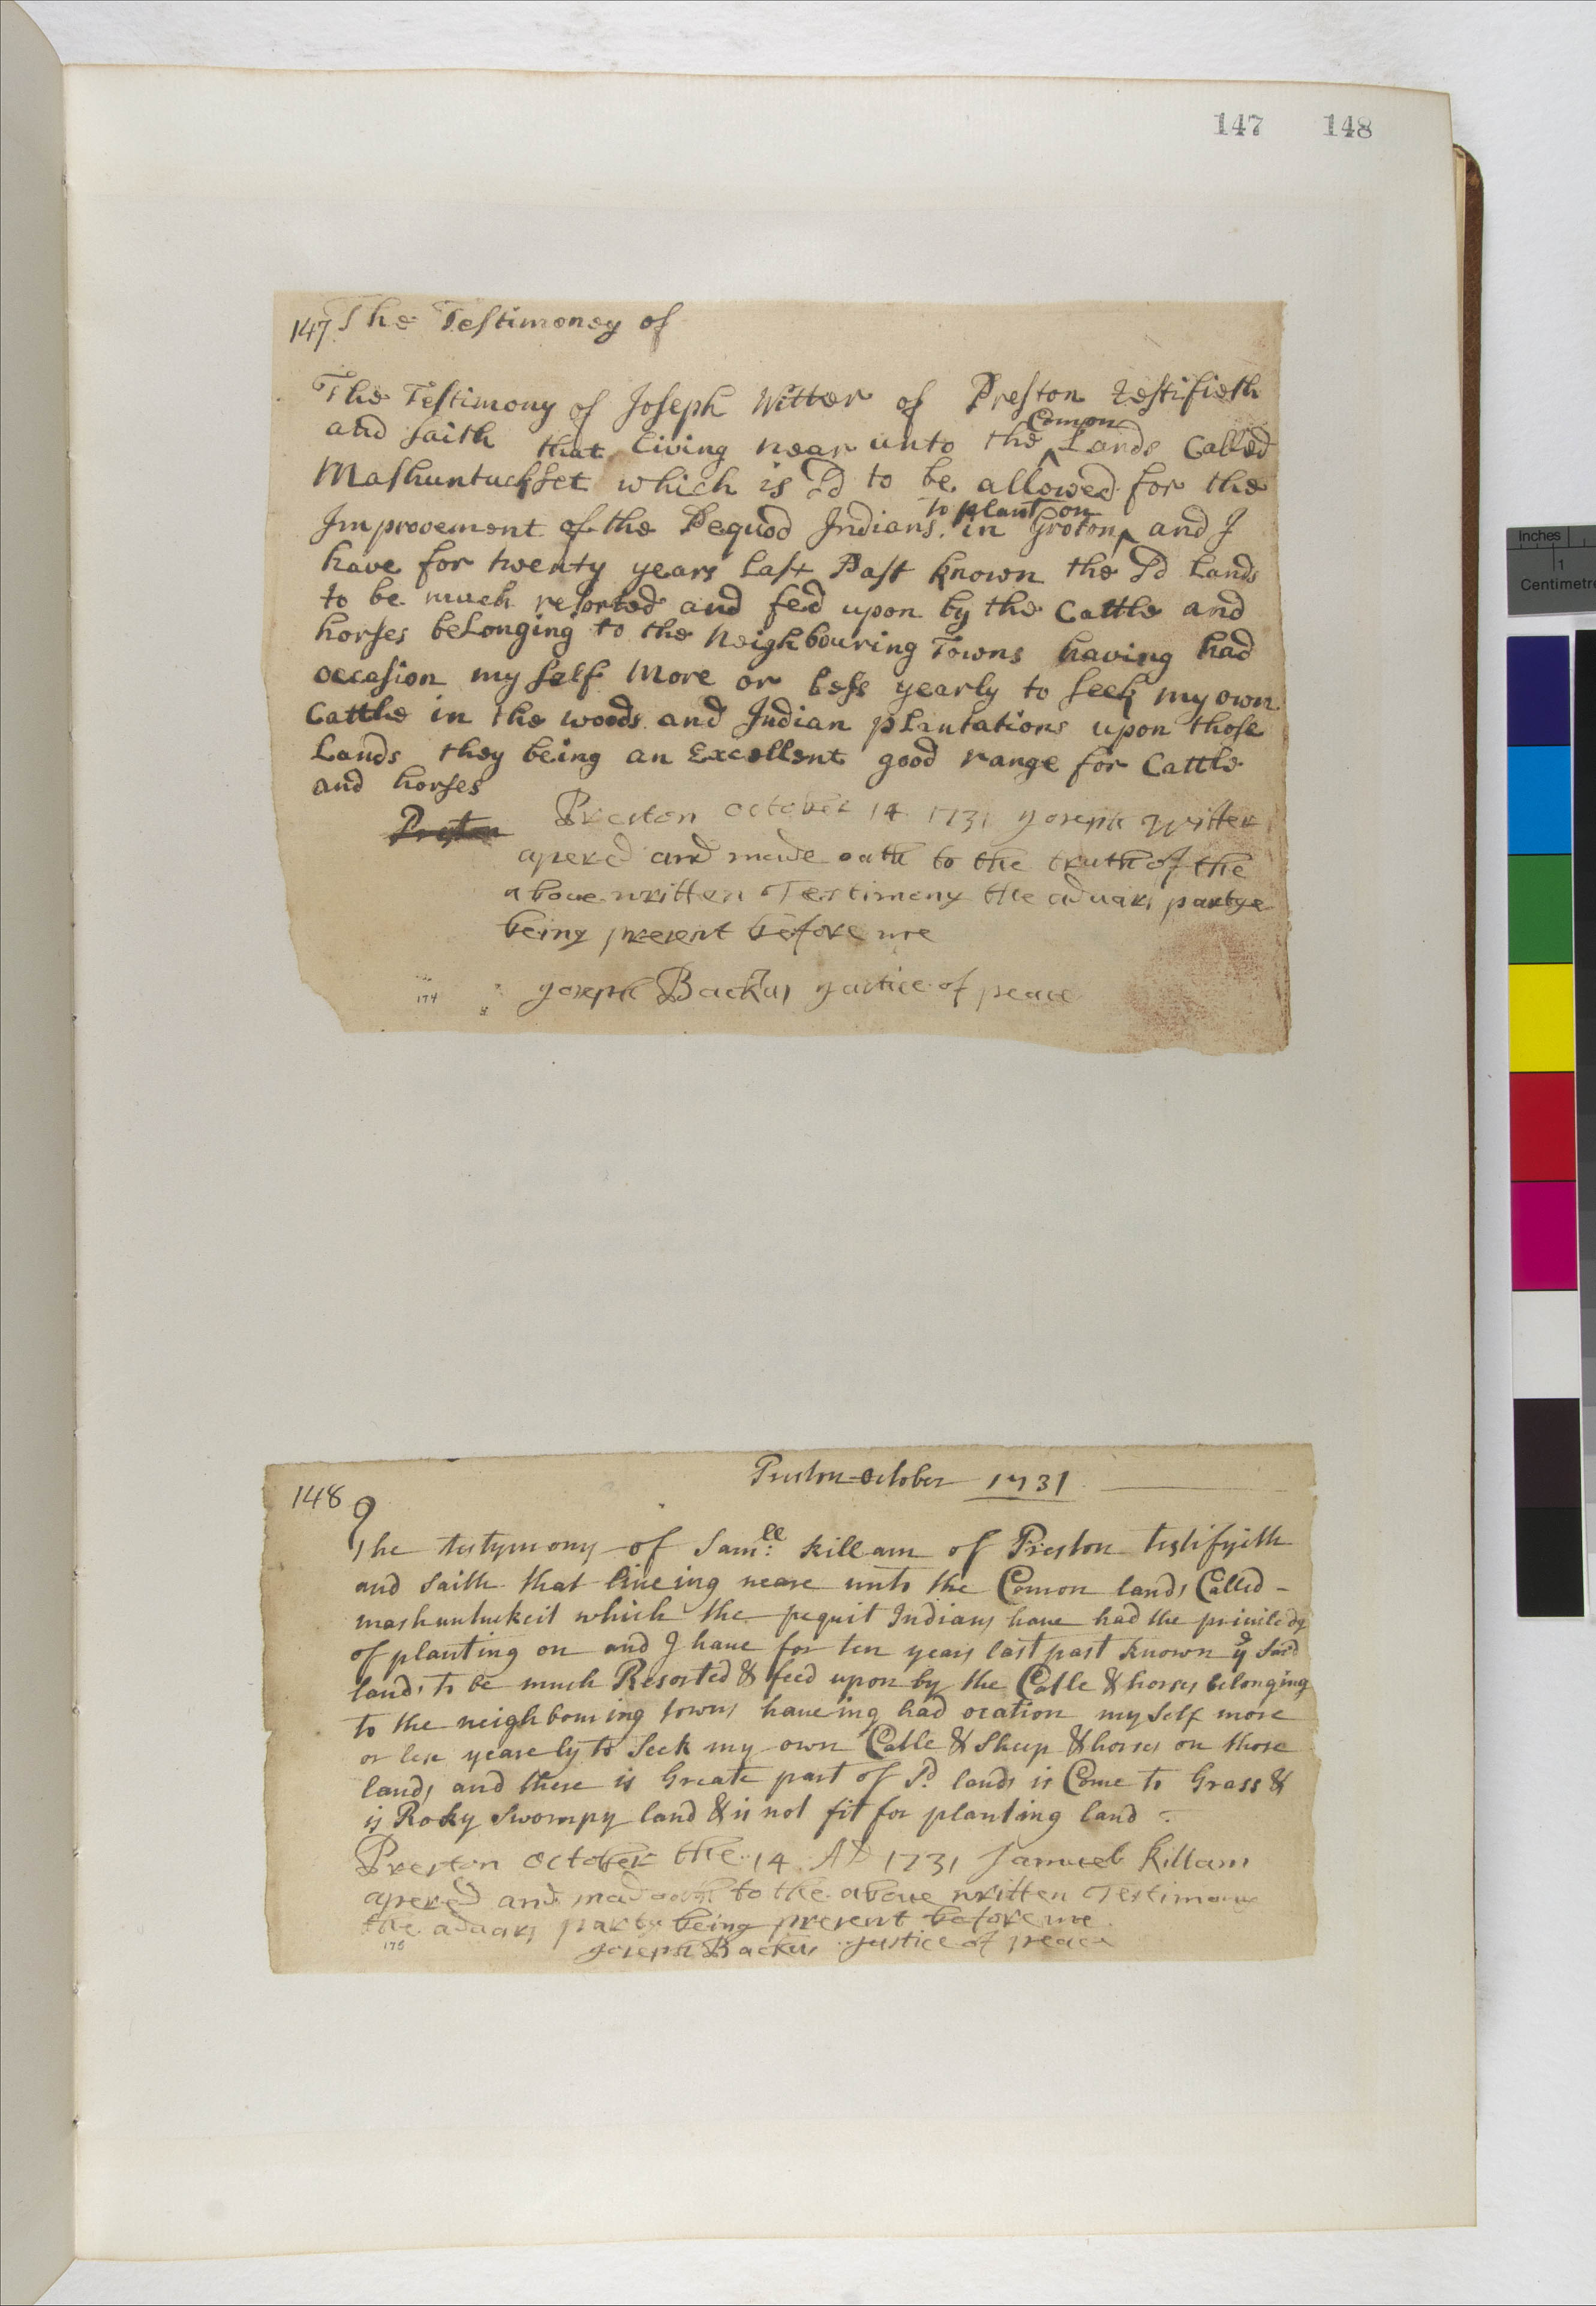 147 148
147 The Testimoney of
The Testimony of Joseph Witter of Preston testifieth
and saith that living near unto the ^Comon Lands Called
Mashuntuckset which is Sd to be allowed for the
Improvement of the Pequod Indians. in Groton ^to plant on and I
have for twenty years Last Past known the Sd Lands
to be much resorted and fed upon by the Cattle and
horses beLonging to the Neighbouring Towns having had
occasion my self More or Less yearly to seek my own
Cattle in the woods and Indian plantations upon those
Lands they being an Excellent good range for Cattle
and horses
Preston
Preston october 14 1731 Joseph Witter
apered and made oath to the truth of the
above written Testimony the aduars partye
being present before me
174 Joseph Backus Justice of peace
Preston October 1731
148 9
The testymony of Samll: killam of Preston testifyith
and saith that liueing neare unto the Comon lands Called -
mashuntuckeit which the pequit Indians haue had the priuiledg
of planting on and I haue for ten years last past known ye Said
lands to be much Resorted & feed upon by the Catle & horses belonging
to the neighbouring towns haueing had ocation my Self more
or less yearely to Seek my own Catle & Sheep & horses on those
lands and there is Greate part of Sd lands is Come to Grass &
is Roky Swompy land & is not fit for planting land
Preston october the 14 AD 1731 Samuel Killam
apered and mad oath to the aboue written Testimony
the aduars party being present before me
175 Joseph Backus Justice of peace
Inches
1
Centimetre